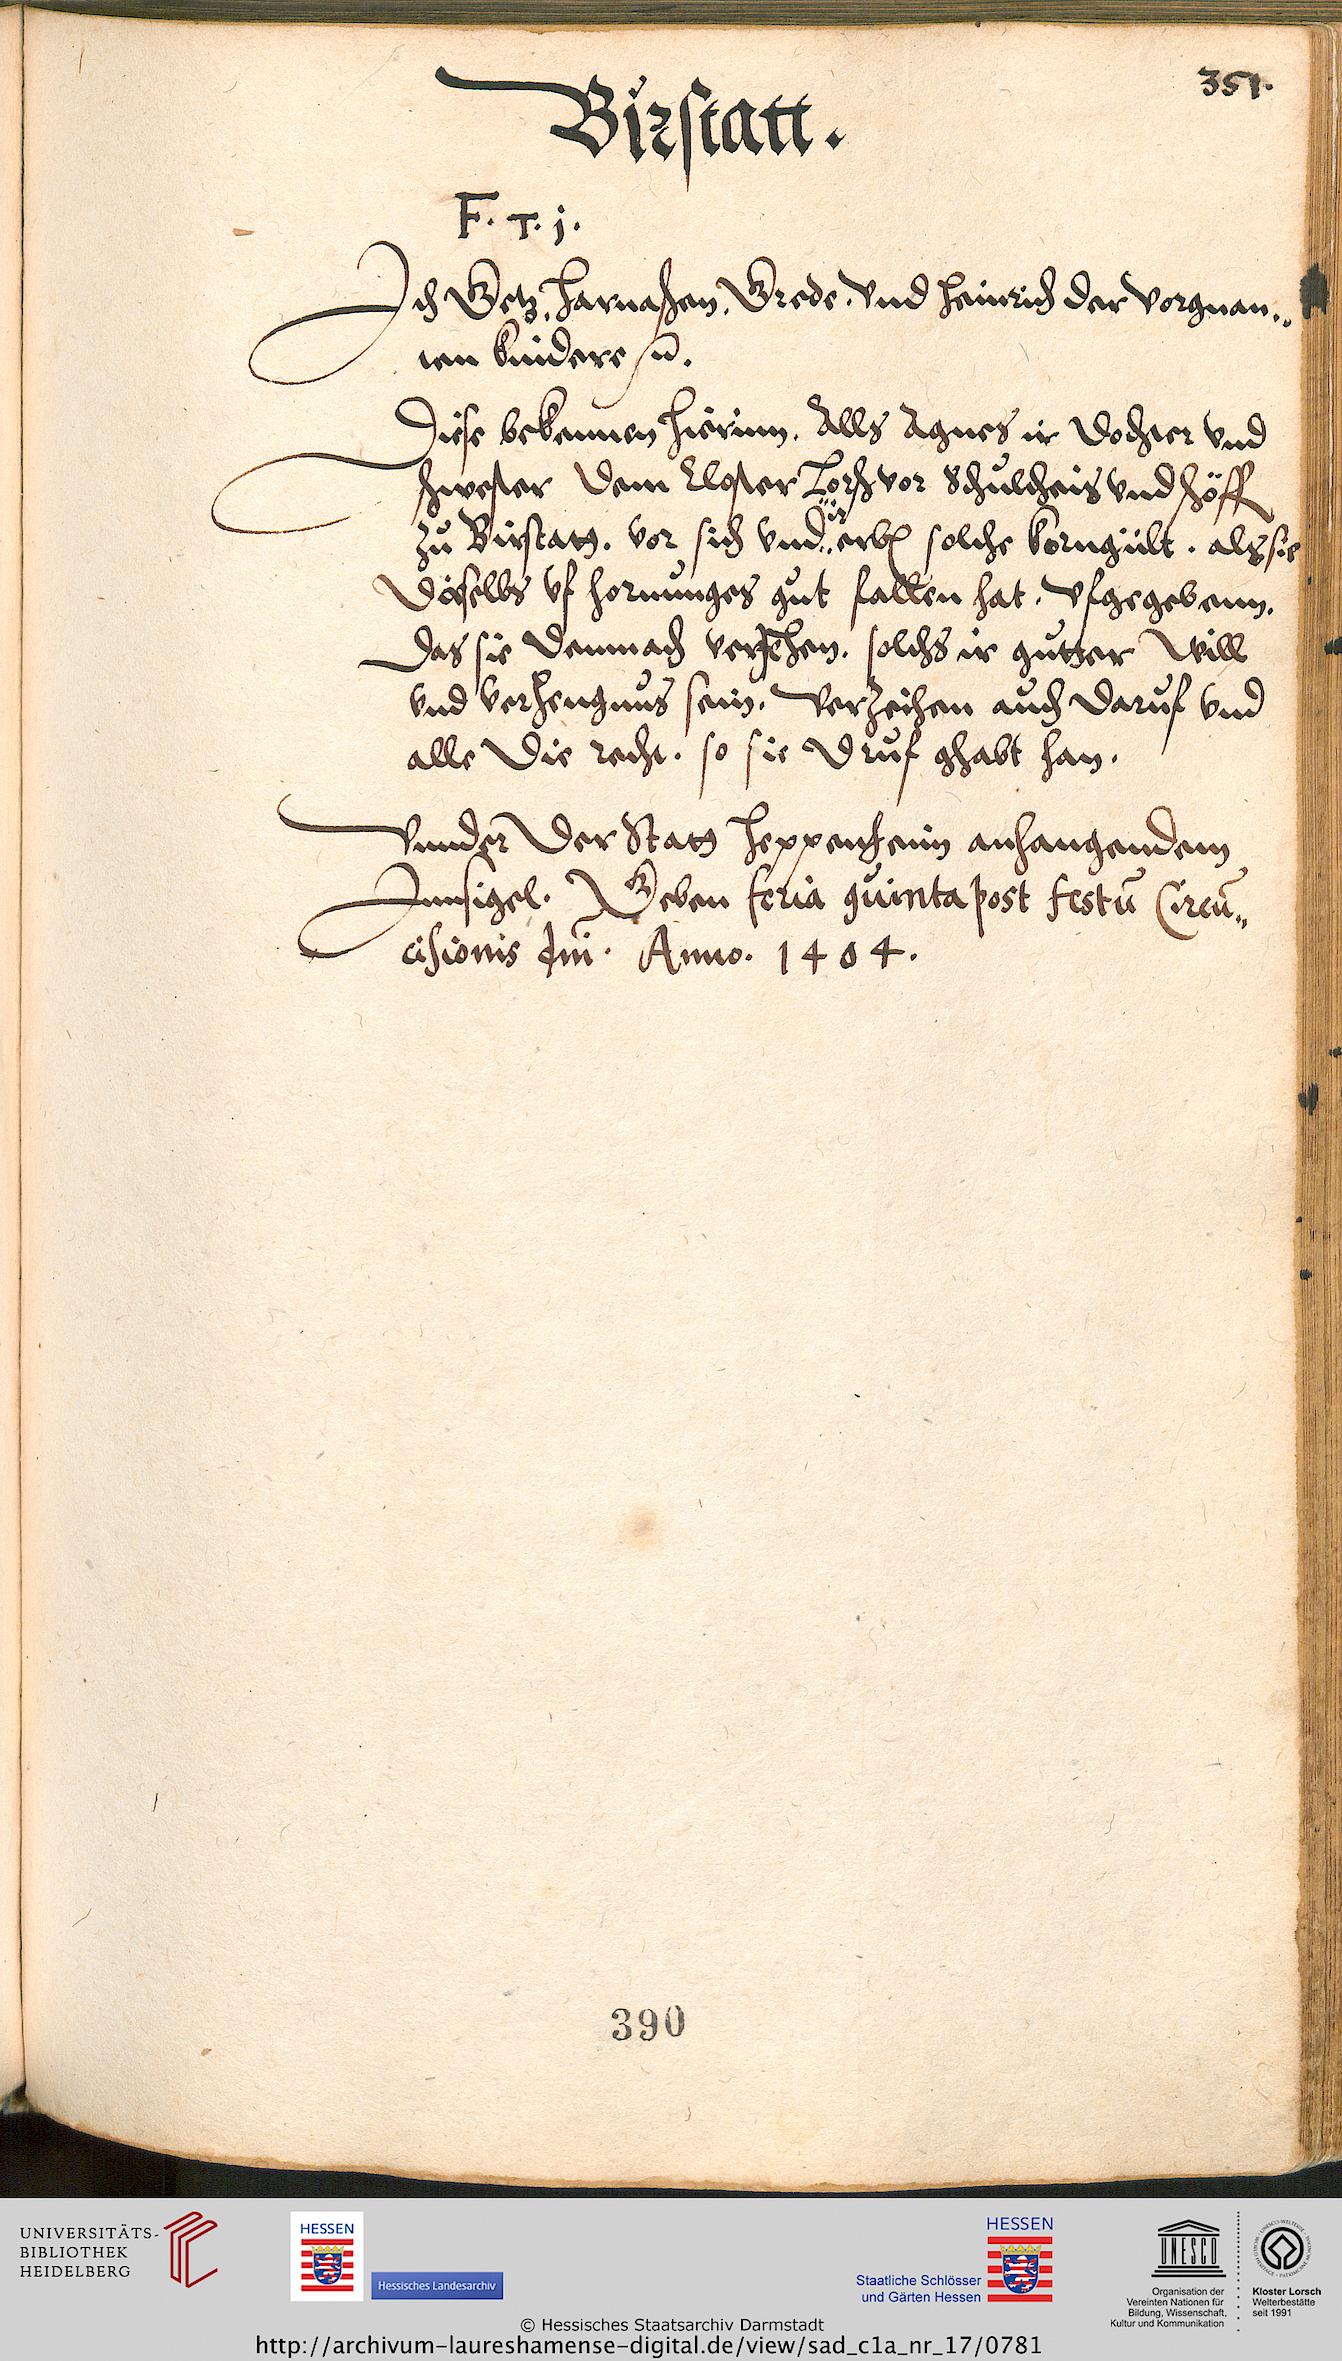 351.
Birstatt.
F. T. j.
Ich Betz, Harnaschen, Grede, vnd Heinrich der vorgnan„
ten kindere
Diese bekennen hierinn. Alls Agnes ir dochter vnd
schwester dem Closter Lorsch vor Schultheis vnd höff
zu Birstatt. vor sich vnd ir erben solche korngült. als sie
doselbs vf hornunges gut fallen hat. vfgegebenn.
Das sie demnach verjehen. solchs ir gutter will
vnd verhengnus sein. Verzeihen auch daruf vnd
alle die recht. so sie druf ghabt han.
Vnnder der Statt Heppenheim anhangendem
Innsigel. Geben feria quinta post festū Circū„
cisionis dni. Anno. 1404.
390
UNIVERSITÄTS-
BIBLIOTHEK
HEIDELBERG
HESSEN
Hessisches Landesarchiv
HESSEN
Staatliche Schlösser
und Gärten Hessen
UNESCO
Organisation der
Vereinten Nationen für
Bildung, Wissenschaft,
Kultur und Kommunikation
Kloster Lorsch
Welterbestätte
seit 1991
© Hessisches Staatsarchiv Darmstadt
http://archivum-laureshamense-digital.de/view/sad_c1a_nr_17/0781